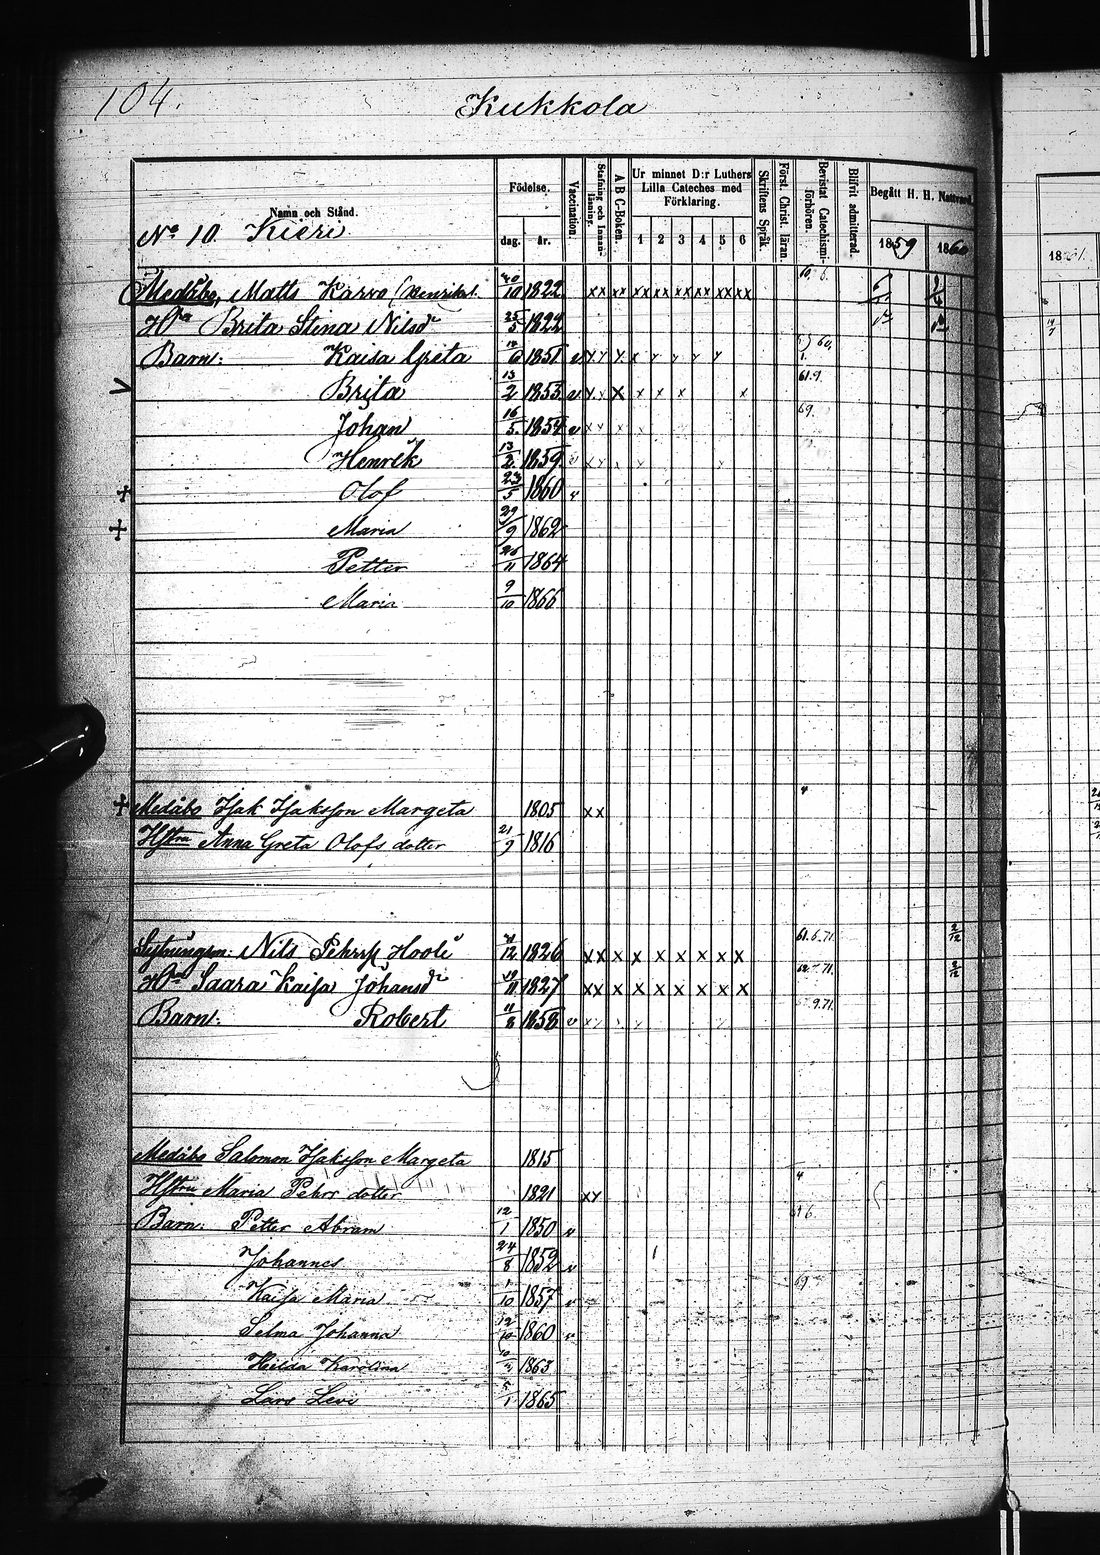 104.
Kukkola
Namn och Stånd.
Födelse.
dag.
år.
Vaccination.
Stafning och Innan-läsning.
A B C-Boken.
Ur minnet D:r Luthers
Lilla Cateches med
Förklaring.
1 2 3 4 5 6
Skriftens Språk.
Först. Christ. läran.
Bevistat Catechismi-förhören.
Blifvit admitterad.
Begått H. H. Nattvard.
1859 1860
1861.
No 10 Kieri
Medåbo, Matts Karvo (Henriks. 20/10 1822 xx xx xx xx xx xx xx xx
Brita Stina Nilsdr 25/5 1822
Barn: Kaisa Greta 1851
Brita 13/2 1853
Johan 16/5 1854
Henrik 13/2 1859
Olof 23/5 1860 v
Maria 29/9 1862
Petter 26/11 1864
Maria 9/10 1866
Medåbo Isak Isaksson Margeta 1805 xx
Hstru Anna Greta Olofs dotter 21/9 1816
Nils Pehrss Hooli 12 1826 xx x x x x x x x 61.6.71. 2/12
Saara Kaisa Johansdr 11 1827 xx x x x x x x x
Barn: Robert 11/8 1858 v
Medåbo Salomon Isaksson Margeta 1815
Hstru Maria Pehrs dotter 1821 xx
Barn: Petter Abram 12/1 1850 v
Johannes 24/8 1852 v
Kaisa Maria 1/10 1857 v 69
Selma Johanna 12/10 1860 v
Hilda Karolina 1863
Lars Levi 5/1 1865